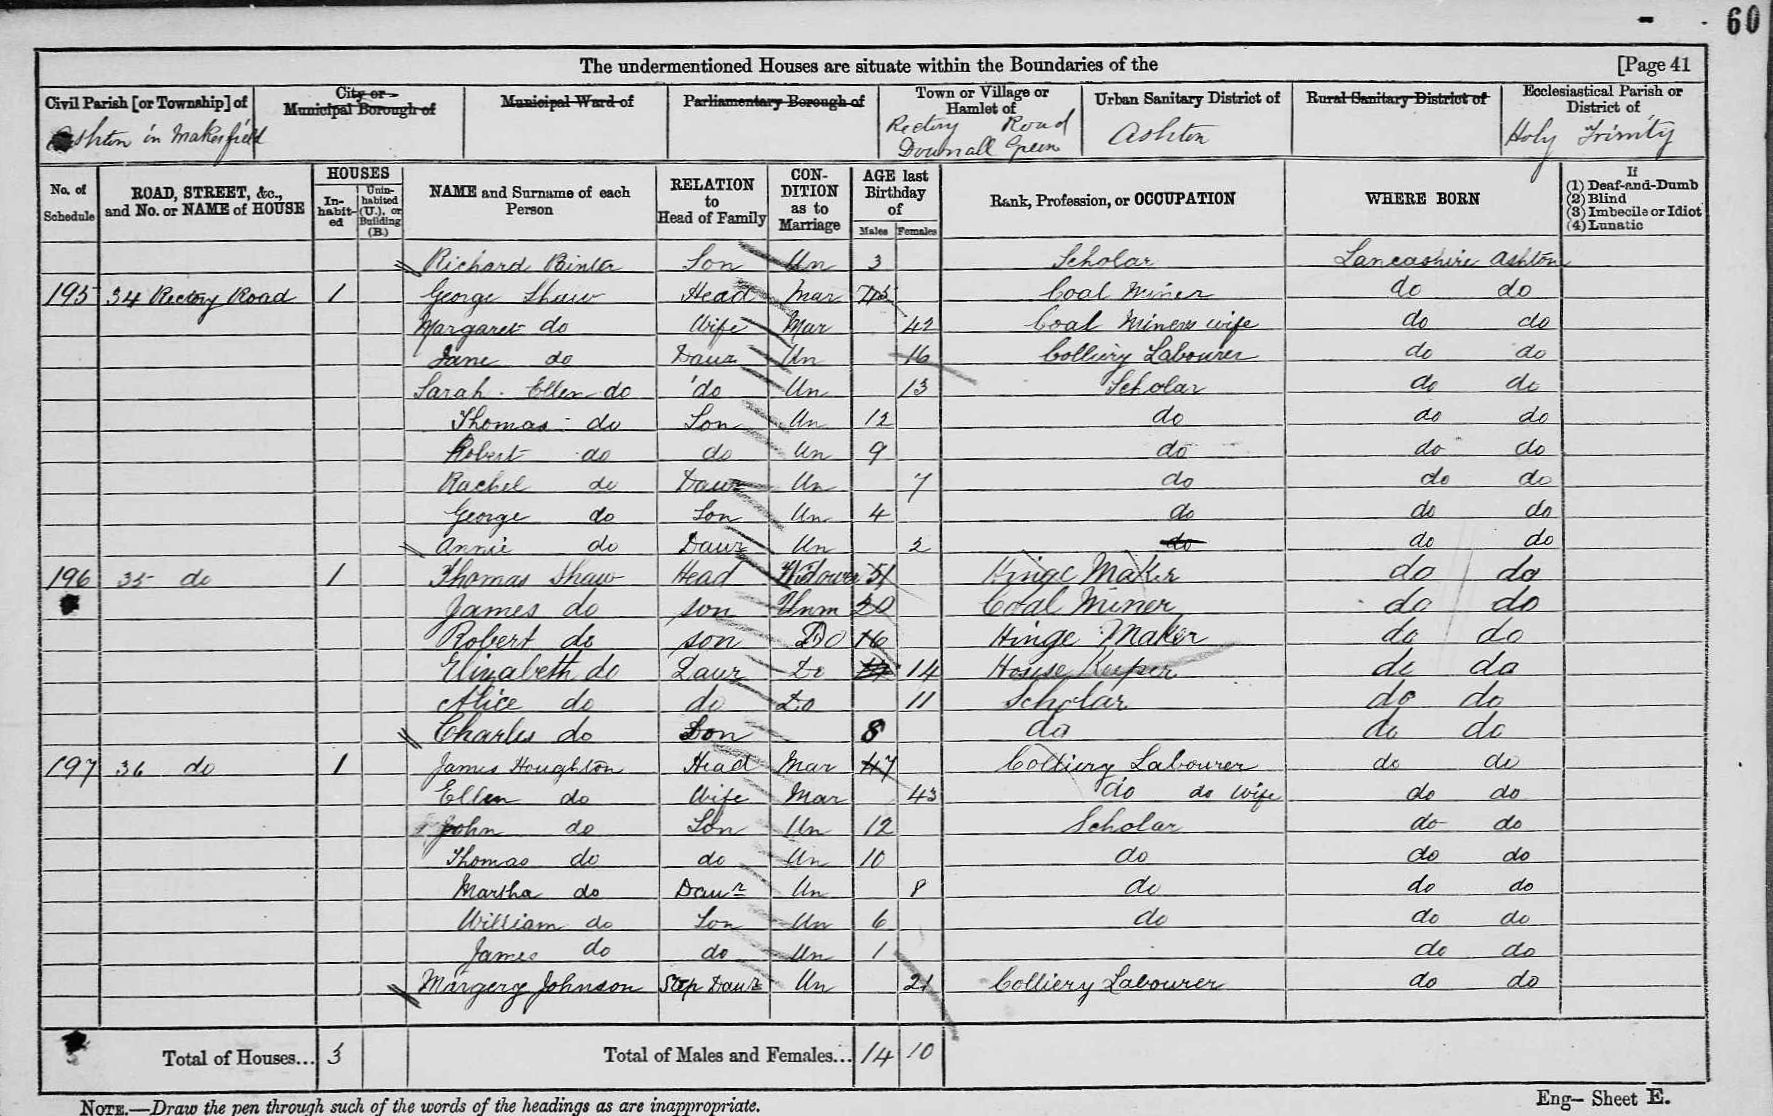 60
The undermentioned Houses are situate within the Boundaries of the [Page 41
Civil Parish [or Township] of
Ashton in Makerfield
City or Municipal Borough of
Municipal Ward of
Parliamentary Borough of
Town or Village or Hamlet of
Rectory Road
Downall Green
Urban Sanitary District of
Ashton
Rural Sanitary District of
Ecclesiastical Parish or District of
Holy Trinity
No. of Schedule
ROAD, STREET, &c., and No. or NAME of HOUSE
HOUSES
In-habit-ed
Unin-habited (U.), or Building (B.)
NAME and Surname of each Person
RELATION to Head of Family
CON-DITION as to Marriage
AGE last Birthday of
Males Females
Rank, Profession, or OCCUPATION
WHERE BORN
If
(1) Deaf-and-Dumb
(2) Blind
(3) Imbecile or Idiot
(4) Lunatic
Richard Son Un 3 Scholar Lancashire Ashton
195 34 Rectory Road 1 George Shaw Head Mar 43 Coal Miner do do
Margaret do Wife Mar 42 Coal Miners wife do do
Jane do Daur Un 16 Colliery Labourer do do
Sarah Ellen do do Un 13 Scholar do do
Thomas do Son Un 12 do do do
Robert do do Un 9 do do do
Rachel do Daur Un 7 do do do
George do Son Un 4 do do do
Annie do Daur Un 2 do do do
196 35 do 1 Thomas Shaw Head Widower 51 Hinge Maker do do
James do son Unm 20 Coal Miner do do
Robert do son Do 16 Hinge Maker do do
Elizabeth do Daur Do 14 House Keeper do do
Alice do do Do 11 Scholar do do
Charles do Son 8 do do do
197 36 do 1 James Houghton Head Mar 47 Colliery Labourer do do
Ellen do Wife Mar 43 do do Wife do do
John do Son Un 12 Scholar do do
Thomas do do Un 10 do do do
Martha do Daur Un 8 do do do
William do Son Un 6 do do do
James do do Un 1 do do
Margery Johnson Step Daur Un 21 Colliery Labourer do do
Total of Houses... 3 Total of Males and Females... 14 10
NOTE.—Draw the pen through such of the words of the headings as are inappropriate.
Eng— Sheet E.